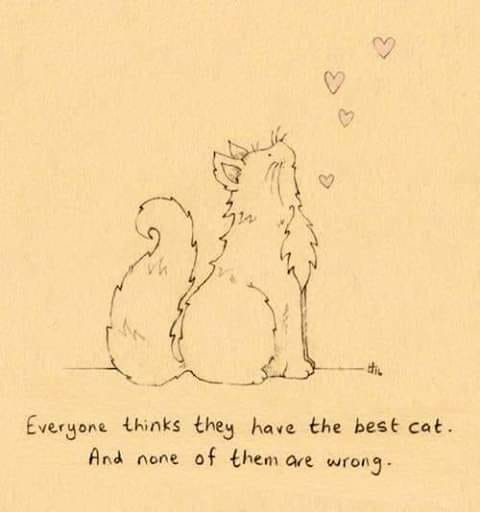 Everyone thinks they have the best cat.
And none of them are wrong.